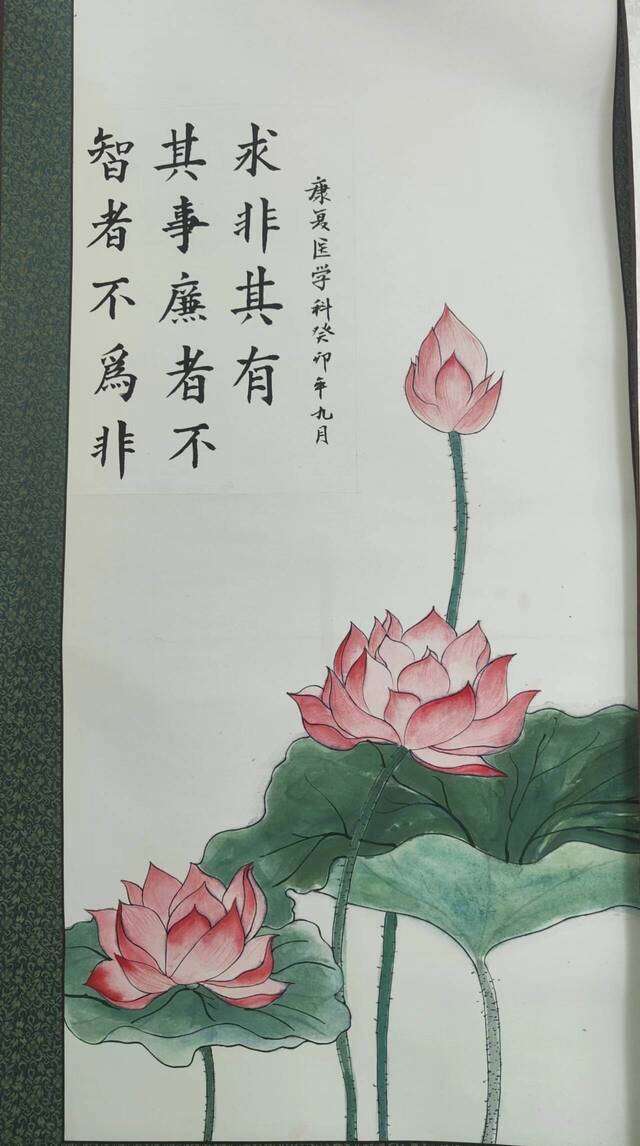 智者不爲非
其事廉者不
求非其有
康复医学科癸卯年九月